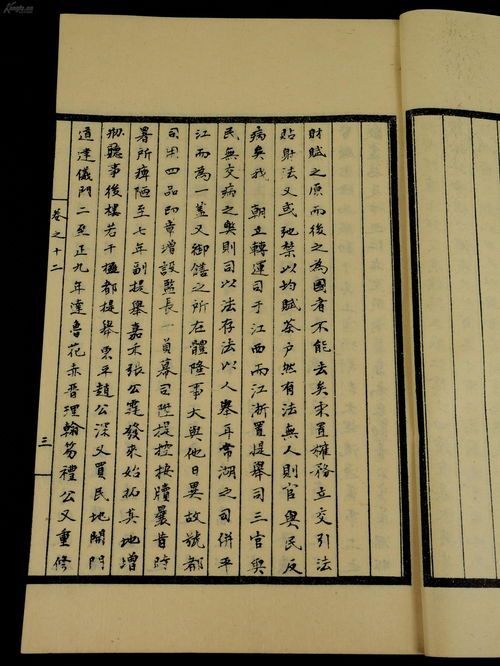 財賦之原而後之為國者不能去矣宋置榷務立交引法
貼射法又或弛禁以均賦茶戶然有法無人則官與民反
病矣我 朝立轉運司于江西而江浙置提舉司三官與
民無交病之與則司以法存法以人舉耳常湖之司併平
江而為一盖又御饍之所在體隆事大與他日異故號都
司用四品印章增設監長一員幕司陞提控按牘曩昔時
署所痺陋至七年副提舉嘉禾張公霆發來始拓其地增
扐聽事後樓若干楹都提舉東平趙公深又買民地開門
道達儀門二至正九年達魯花赤晉理翰芴禮公又重修
卷之十二
三
Kongfz.cn